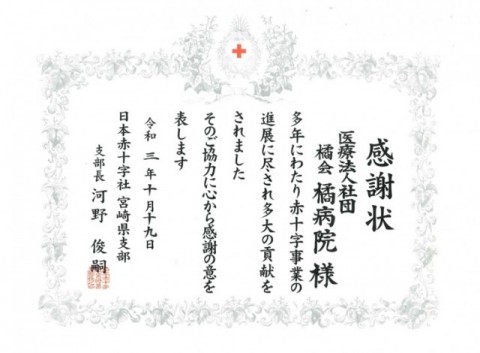 感謝状
医療法人社団
橘会 橘病院 様
多年にわたり赤十字事業の
進展に尽され多大の貢献を
されました
そのご協力に心から感謝の意を
表します
令和三年十月十九日
日本赤十字社 宮崎県支部
支部長 河野 俊嗣